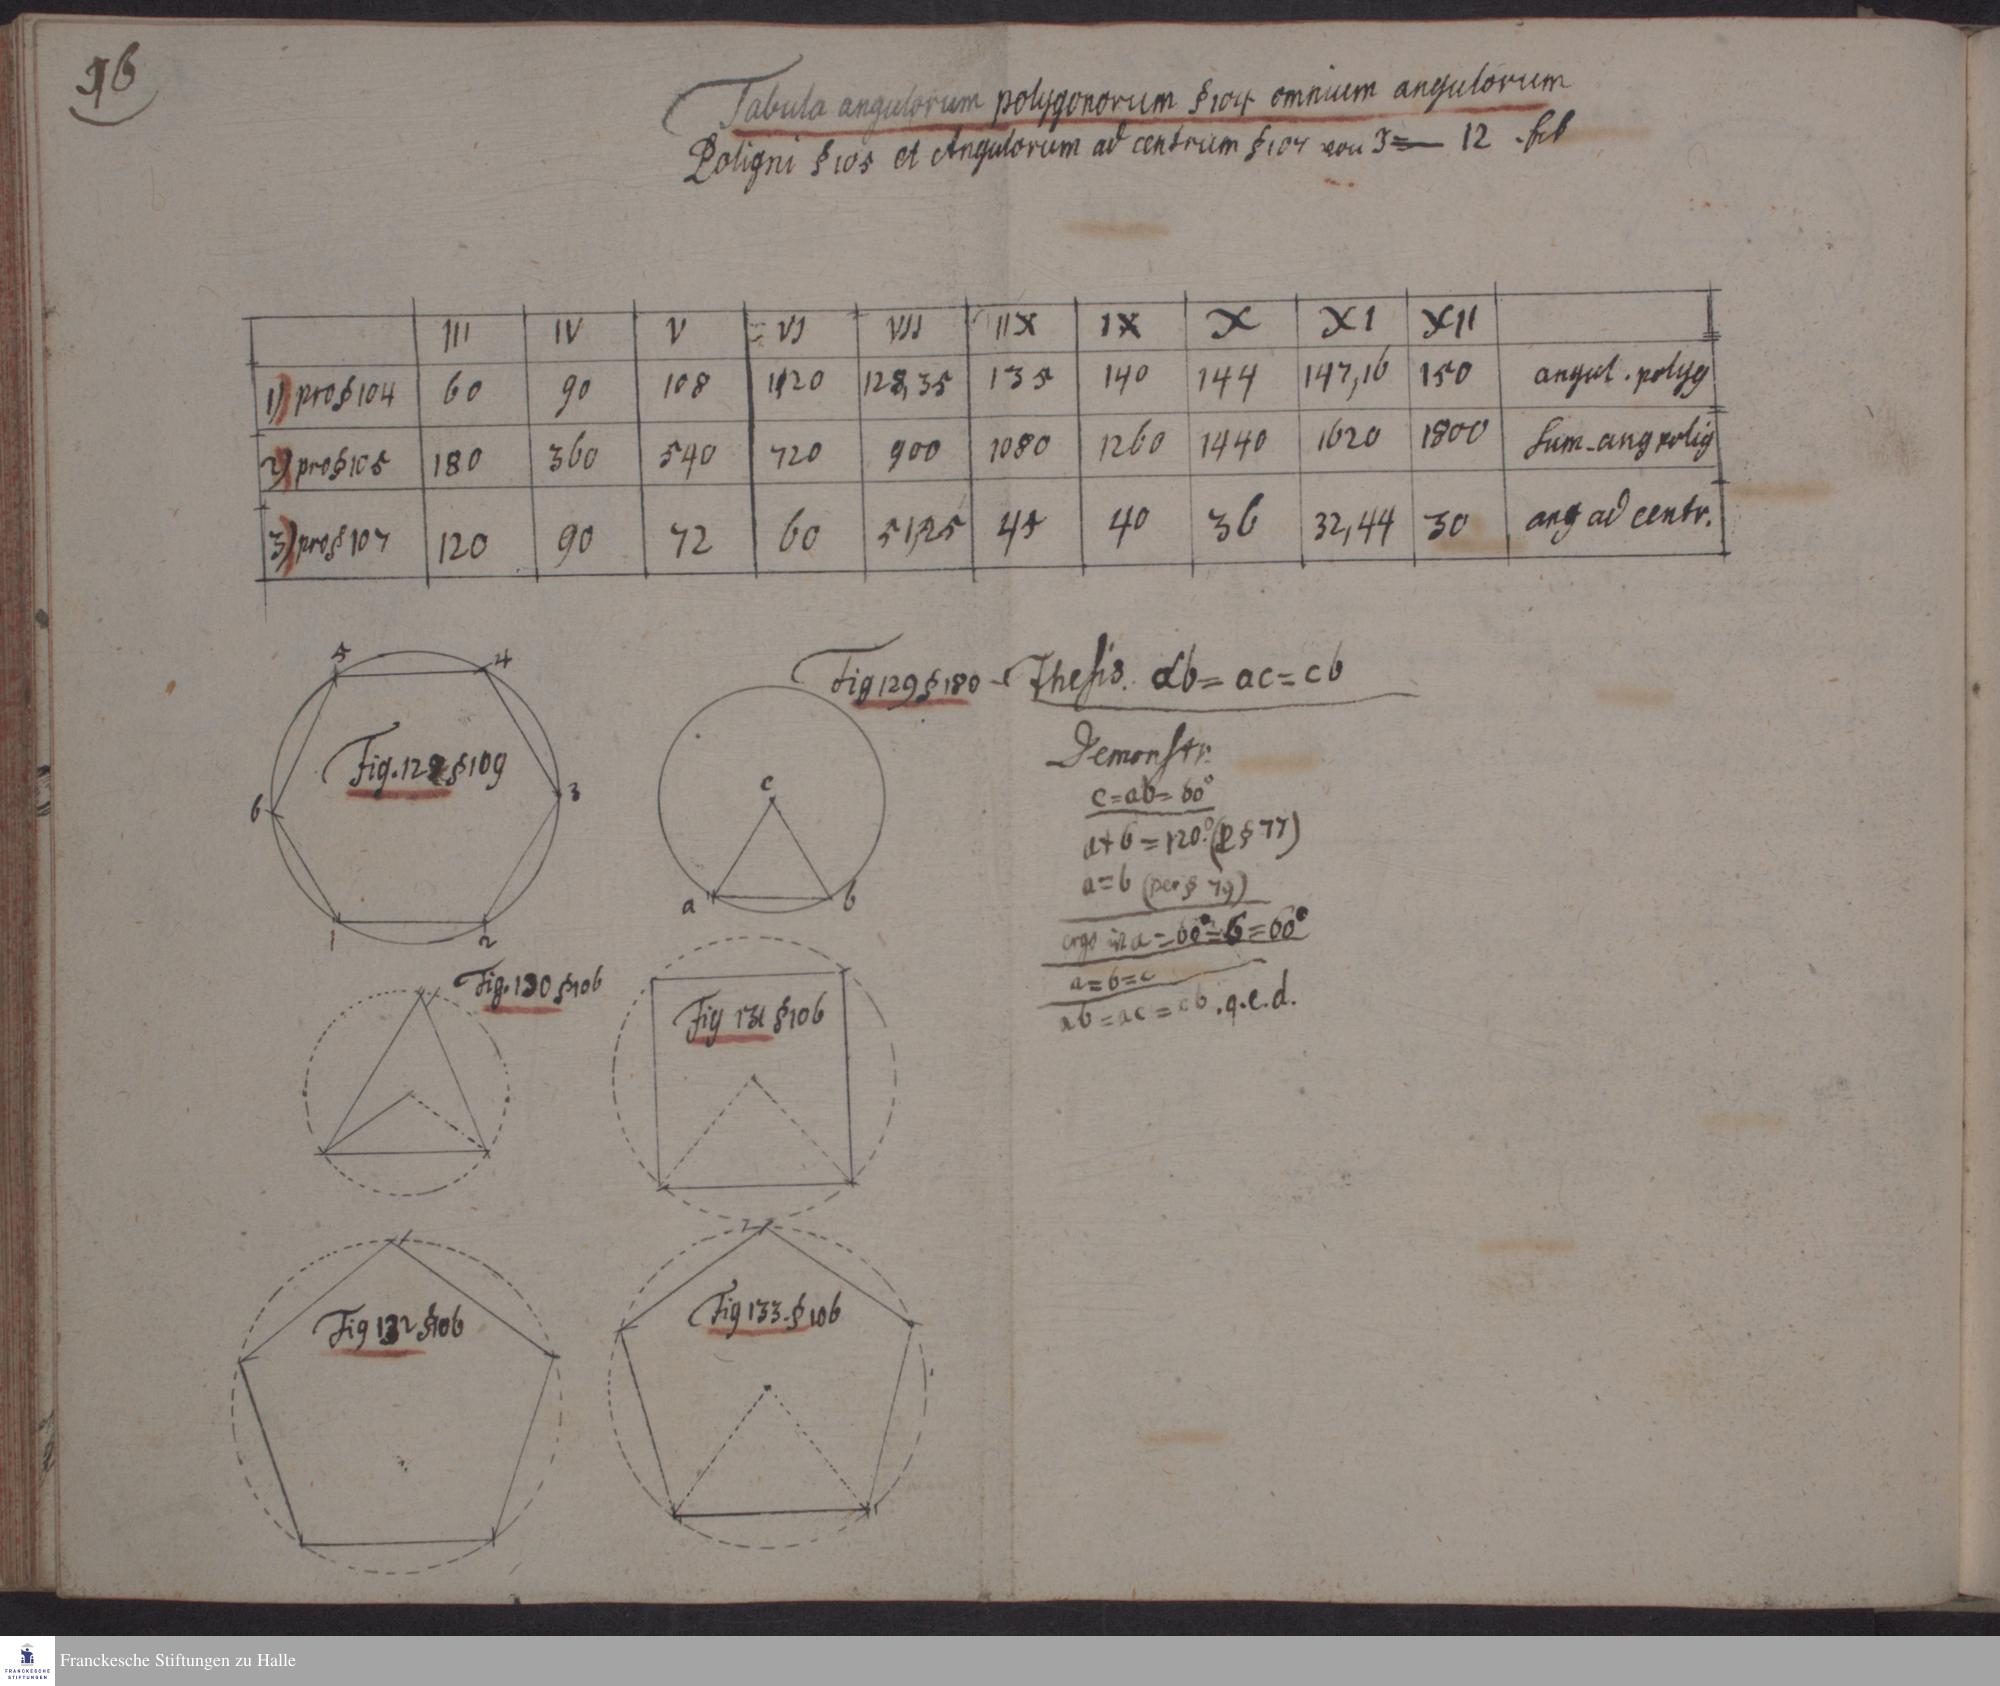 96
Tabula angulorum polygonorum § 104 omnium angulorum
Poligni § 105 et Angulorum ad centrum § 107 von 3 = 12
III IV V VI VII IIX IX X XI XII
1) pro § 104 60 90 108 120 128,35 135 140 144 147,16 150 angul. polyg
2) pro § 105 180 360 540 720 900 1080 1260 1440 1620 1800 Sum. ang polig
3) pro § 107 120 90 72 60 51,25 45 40 36 32,44 30 ang ad centr.
5 4
Fig. 128 § 109
6 3
1 2
Fig 129 § 180
c
a b
Thesis. ab = ac = cb
Demonstr.
c = ab = 60°
a + b = 120° (p § 77)
a = b (per § 79)
ergo a = 60° = b = 60°
a = b = c
ab = ac = cb . q.e.d.
Fig. 130 § 106
Fig 131 § 106
Fig 132 § 106
Fig 133 § 106
FRANCKESCHE
STIFTUNGEN
Franckesche Stiftungen zu Halle